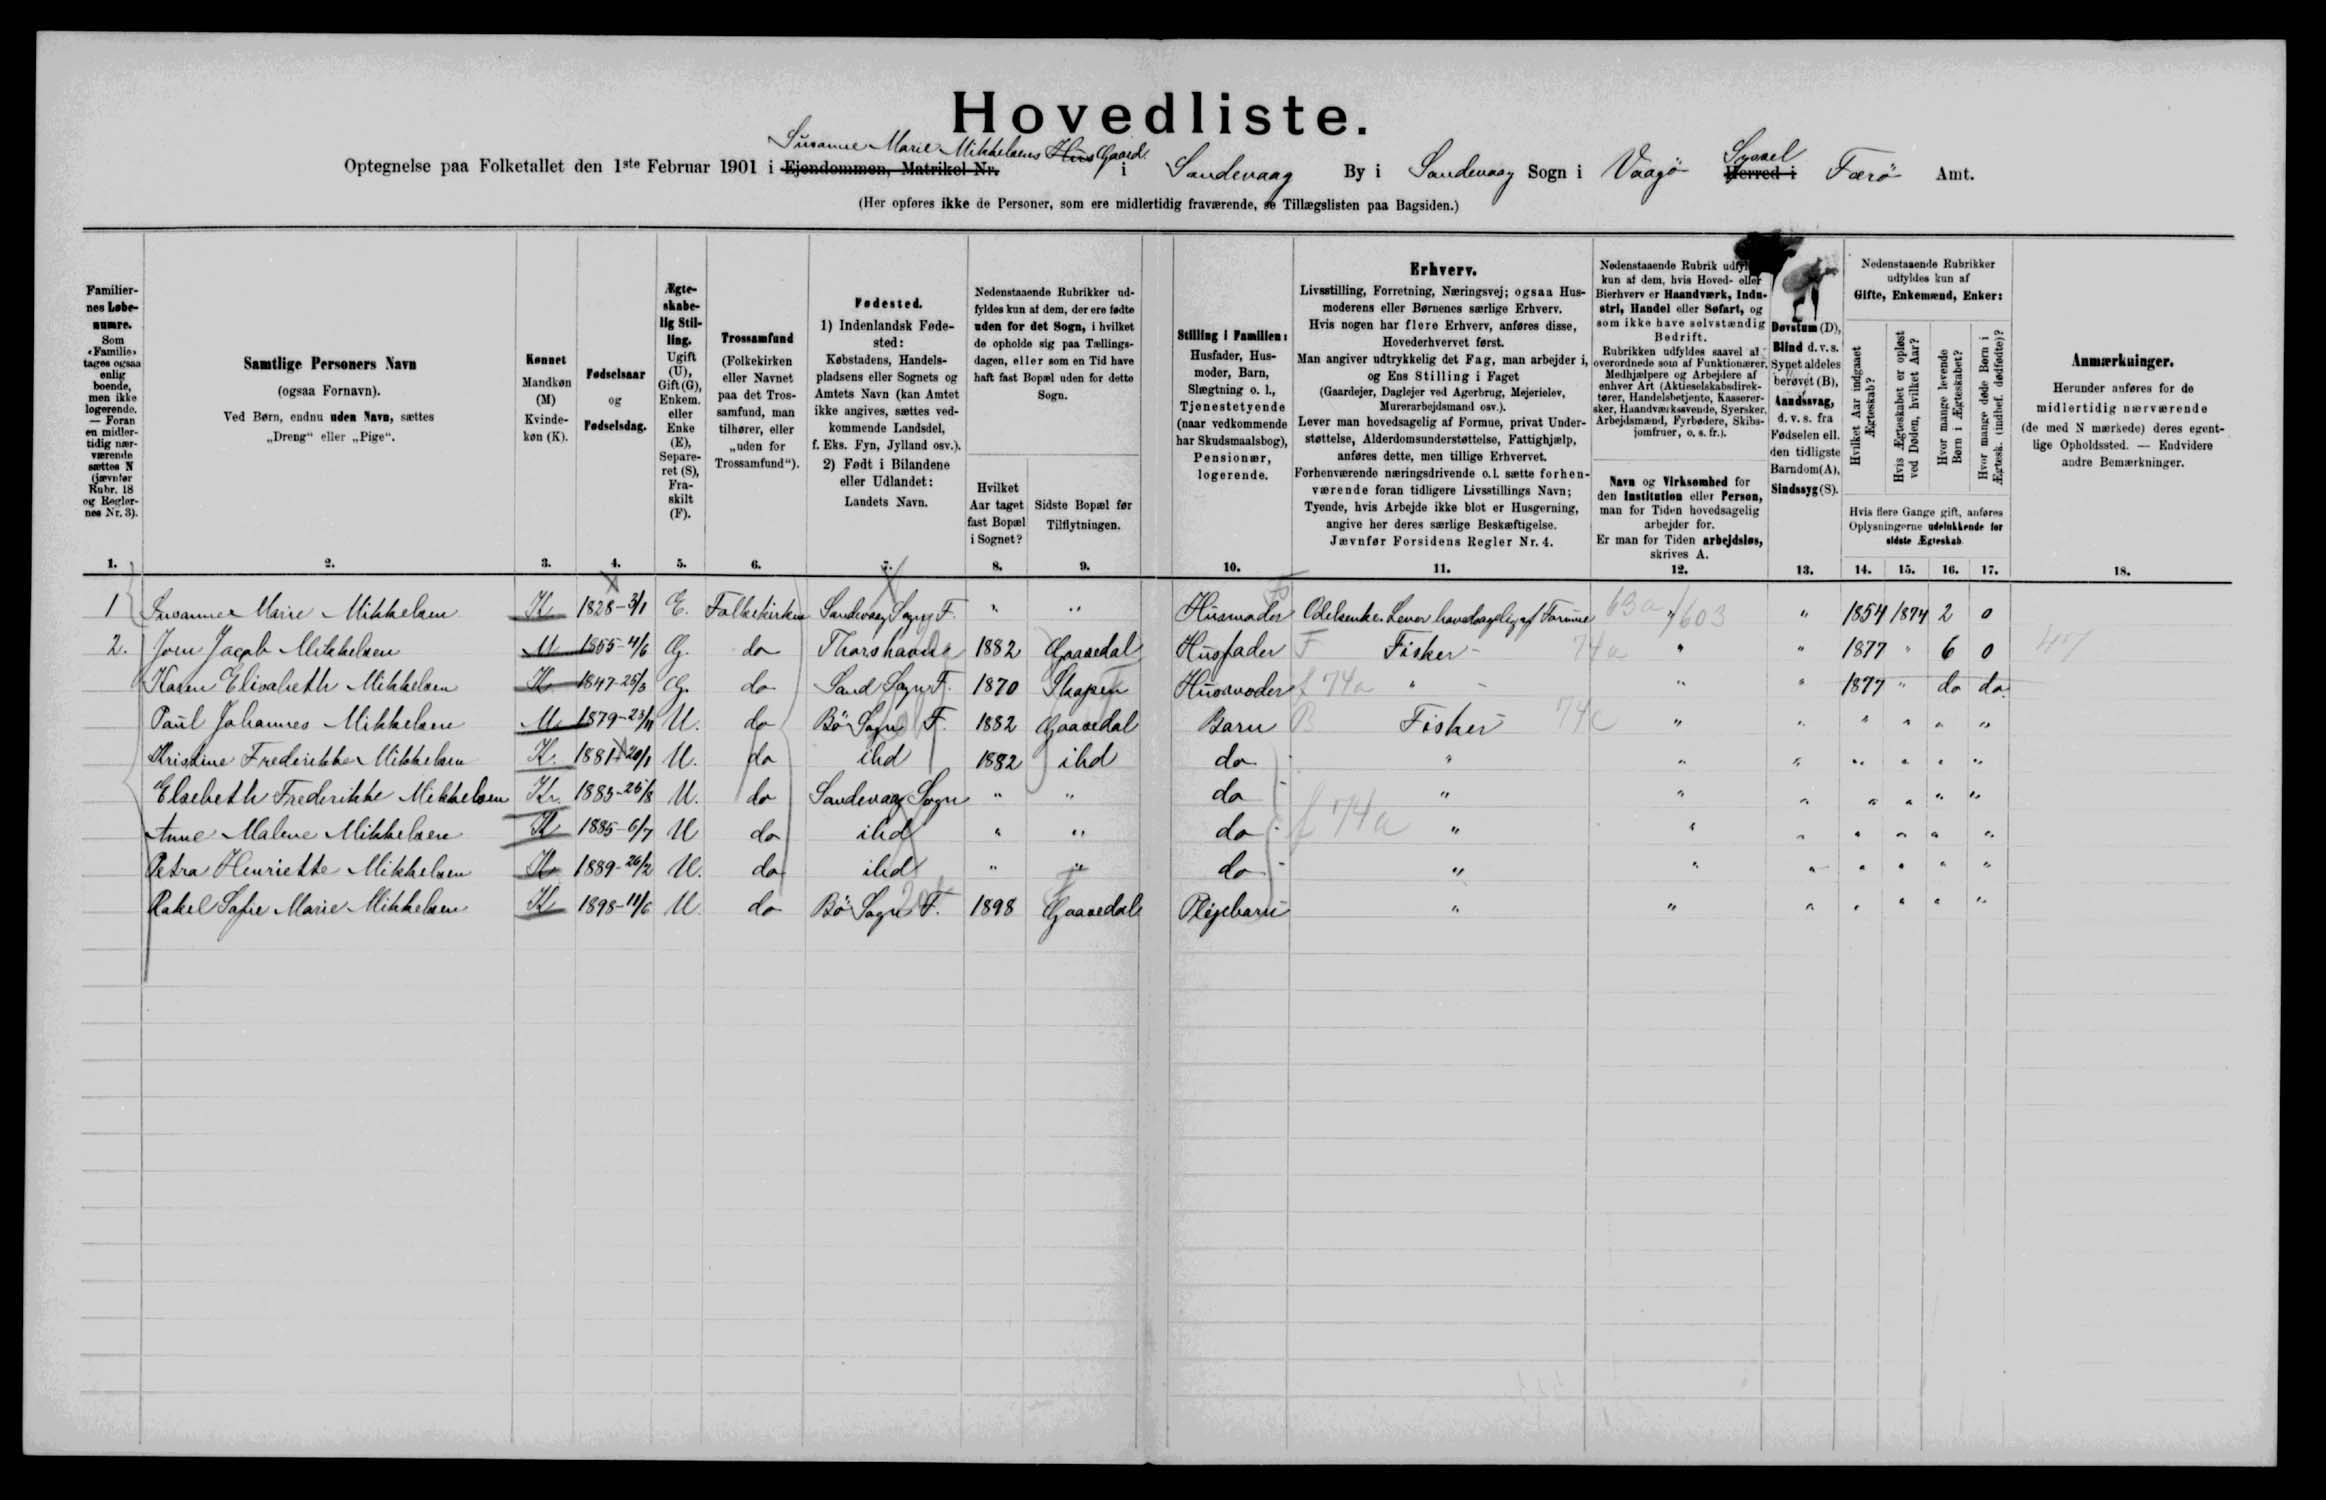 Hovedliste.
Susanne Marie Mikkelsens Hus Gaard
Optegnelse paa Folketallet den 1ste Februar 1901 i Ejendommen, Matrikel Nr. i Sandevaag By i Sandevaag Sogn i Vaagö Syssel Herred i Færö Amt.
(Her opføres ikke de Personer, som ere midlertidig fraværende, se Tillægslisten paa Bagsiden.)
Familiernes Løbenumre.
Som «Familie» tages ogsaa enlig boende, men ikke logerende. — Foran en midlertidig nærværende sættes N (jævnfør Rubr. 18 og Reglernes Nr. 3).
Samtlige Personers Navn
(ogsaa Fornavn).
Ved Børn, endnu uden Navn, sættes
„Dreng“ eller „Pige“.
Kønnet
Mandkøn (M)
Kvindekøn (K).
Fødselsaar
og
Fødselsdag.
Ægteskabelig Stilling.
Ugift (U), Gift (G), Enkem. eller Enke (E), Separeret (S), Fraskilt (F).
Trossamfund
(Folkekirken eller Navnet paa det Trossamfund, man tilhører, eller „uden for Trossamfund“).
Fødested.
1) Indenlandsk Fødested:
Købstadens, Handelspladsens eller Sognets og Amtets Navn (kan Amtet ikke angives, sættes vedkommende Landsdel, f. Eks. Fyn, Jylland osv.).
2) Født i Bilandene eller Udlandet:
Landets Navn.
Nedenstaaende Rubrikker udfyldes kun af dem, der ere fødte uden for det Sogn, i hvilket de opholde sig paa Tællingsdagen, eller som en Tid have haft fast Bopæl uden for dette Sogn.
Hvilket Aar taget fast Bopæl i Sognet?
Sidste Bopæl før Tilflytningen.
Stilling i Familien:
Husfader, Husmoder, Barn, Slægtning o. l., Tjenestetyende (naar vedkommende har Skudsmaalsbog), Pensionær, logerende.
Erhverv.
Livsstilling, Forretning, Næringsvej; ogsaa Husmoderens eller Børnenes særlige Erhverv.
Hvis nogen har flere Erhverv, anføres disse, Hovederhvervet først.
Man angiver udtrykkelig det Fag, man arbejder i, og Ens Stilling i Faget
(Gaardejer, Daglejer ved Agerbrug, Mejerielev, Murerarbejdsmand osv.).
Lever man hovedsagelig af Formue, privat Understøttelse, Alderdomsunderstøttelse, Fattighjælp, anføres dette, men tillige Erhvervet.
Forhenværende næringsdrivende o.l. sætte forhenværende foran tidligere Livsstillings Navn; Tyende, hvis Arbejde ikke blot er Husgerning, angive her deres særlige Beskæftigelse.
Jævnfør Forsidens Regler Nr. 4.
Nedenstaaende Rubrik udfyldes kun af dem, hvis Hoved- eller Bierhverv er Haandværk, Industri, Handel eller Søfart, og som ikke have selvstændig Bedrift.
Rubrikken udfyldes saavel af overordnede som af Funktionærer, Medhjælpere og Arbejdere af enhver Art (Aktieselskabsdirektører, Handelsbetjente, Kasserersker, Haandværkssvende, Syersker, Arbejdsmænd, Fyrbødere, Skibsjomfruer, o. s. fr.).
Navn og Virksomhed for den Institution eller Person, man for Tiden hovedsagelig arbejder for.
Er man for Tiden arbejdsløs, skrives A.
Døvstum (D), Blind d. v. s. Synet aldeles berøvet (B), Aandssvag, d. v. s. fra Fødselen ell. den tidligste Barndom (A), Sindssyg (S).
Nedenstaaende Rubrikker udfyldes kun af
Gifte, Enkemænd, Enker:
Hvilket Aar indgaaet Ægteskab?
Hvis Ægteskabet er opløst ved Døden, hvilket Aar?
Hvor mange levende Børn i Ægteskabet?
Hvor mange døde Børn i Ægtesk. (indbef. dødfødte)?
Hvis flere Gange gift, anføres Oplysningerne udelukkende for sidste Ægteskab
Anmærkninger.
Herunder anføres for de midlertidig nærværende (de med N mærkede) deres egentlige Opholdssted. — Endvidere andre Bemærkninger.
1. 2. 3. 4. 5. 6. 7. 8. 9. 10. 11. 12. 13. 14. 15. 16. 17. 18.
1 Susanne Marie Mikkelsen K 1828-3/1 E. Folkekirken Sandevaag Sogn F. " " Husmoder Odelsenke. Lever hovedsagelig af Formue 63a " /603 " 1854 1874 2 0
2. Joen Jacob Mikkelsen M 1855-4/6 G. do Thorshavn 1882 Gaasedal Husfader F Fisker 74a " " 1877 " 6 0
Karen Elisabeth Mikkelsen K 1847-25/3 G. do Sand Sogn F. 1870 Skapen Husmoder f 74a " " " 1877 " do do
Paul Johannes Mikkelsen M 1879-23/11 U. do Bö Sogn F. 1882 Gaasedal Barn B Fisker 74c " " " " " "
Kristine Frederikke Mikkelsen K. 1881-20/1 U. do ibd 1882 ibd do " " " " " " "
Elsebeth Frederikke Mikkelsen K. 1883-25/8 U. do Sandevaag Sogn " " do " " " " " " "
Anne Malene Mikkelsen K 1885-6/7 U do ibd " " do f 74a " " " " " " "
Petra Henriette Mikkelsen K 1889-26/2 U. do ibd " " do " " " " " " "
Rakel Sofie Marie Mikkelsen K 1898-11/6 U do Bö Sogn F. 1898 Gaasedal Plejebarn " " " " " " "